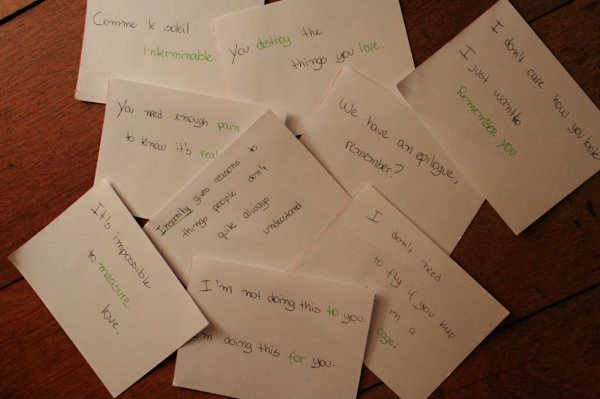 Comme le soleil
interminable
You destroy the
things you love.
I don't care how you look
I just want to
Remember you
You need enough pain
to know it's real
We have an epilogue,
remember?
Insanity gives reasons to
things people don't
quite always
understand.
It's impossible
to measure
love.
I don't need
to fly if you keep
in a
cage.
I'm not doing this to you.
I'm doing this for you.